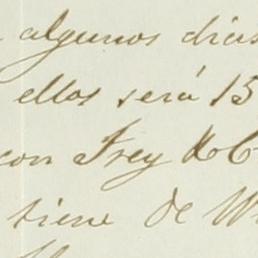 algunos dias
ellos será 15
con Frey
tiene de W